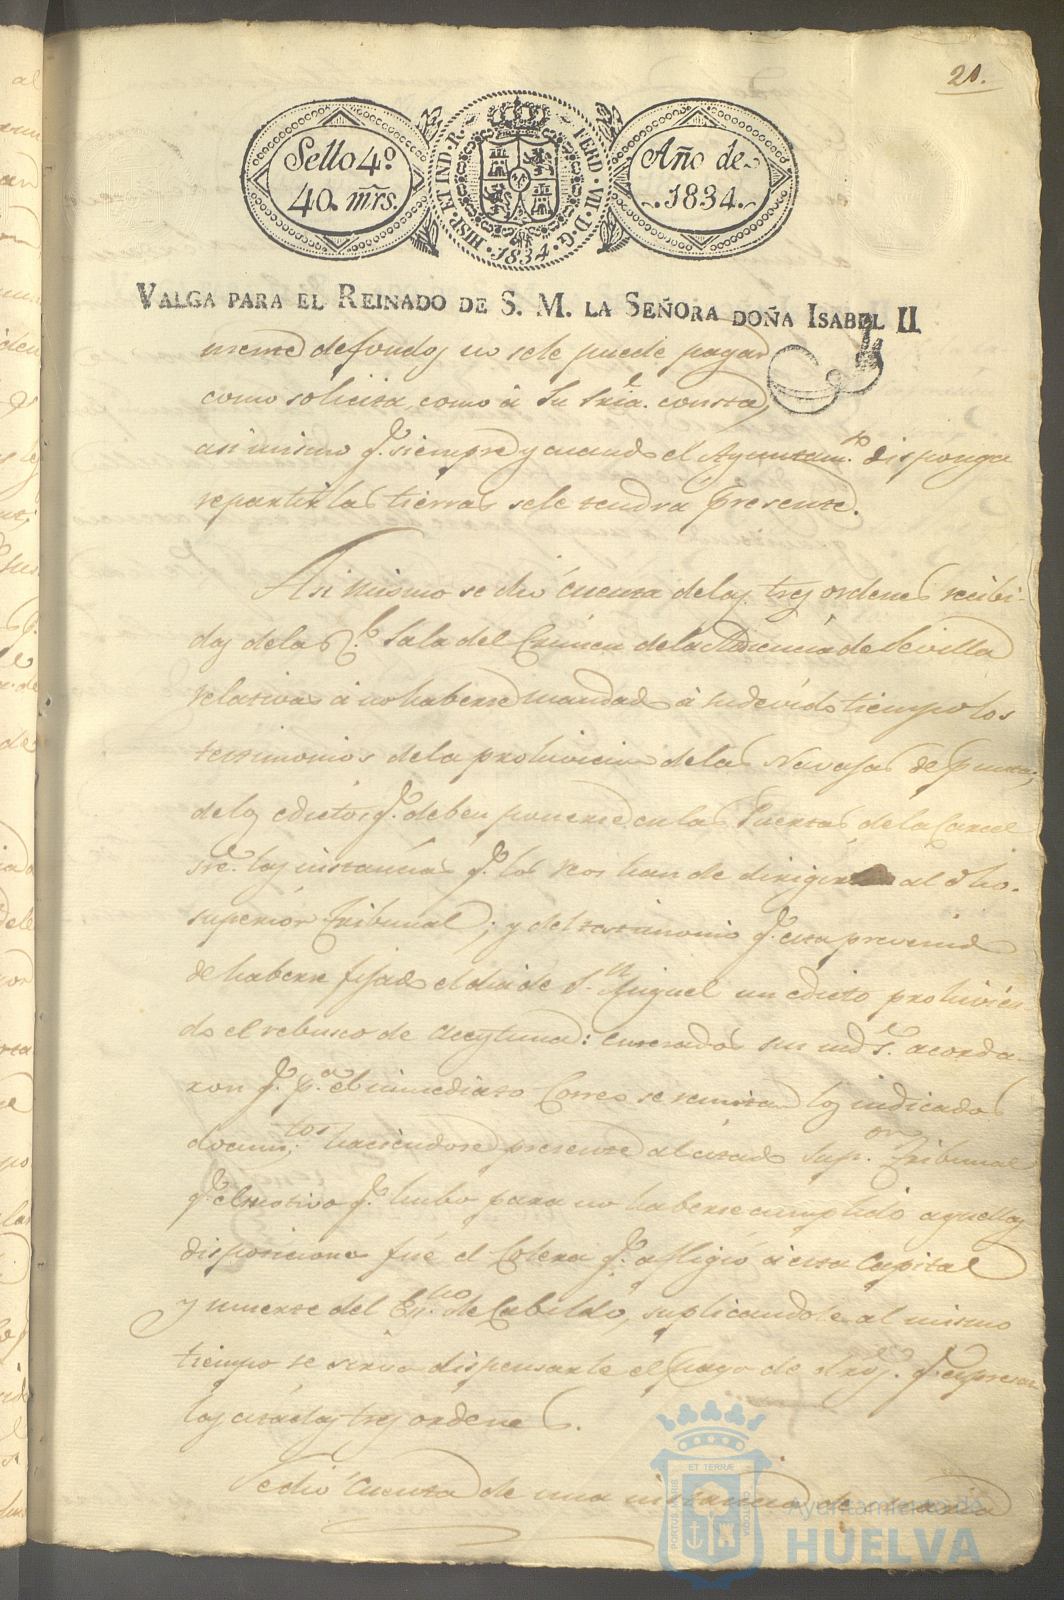 21.
Sello 4º
40. mrs.
HISP. ET IND. R.
FERD. VII. D. G.
1834
Año de
1834.
VALGA PARA EL REINADO DE S. M. LA SEÑORA DOÑA ISABEL II
de fondos no sele puede pagar
como solicita, como á Su Sria. consta,
asi mismo q. siempre y cuando el Ayuntam.to disponga
repartir las tierras sele tendrá presente.
Asi mismo se dió cuenta de las tres ordenes recibi-
das de la Rl. Sala del Crimen de la Audiencia de Sevilla
relativas á no haberse mandado á su devido tiempo los
testimonios de la prohivicion de las Navajas de punta;
de los edictos q. deben ponerse en las Puertas de la Carcel
sre. las instancias q. los reos han de dirigir al dho.
superior Tribunal; y del testimonio q. esta prevenido
de haberse fijado el dia de Sn. Miguel un edicto prohivien-
do el rebusco de Aceytuna: Enterados sus mds. acorda-
ron q. pa. el inmediato Correo se remitan los indicados
docum.tos haciendose presente al citado Sup.or Tribunal
q. el motivo q. hubo para no haberse cumplido aquellas
disposiciones fué el Colera q. afligió á esta Capital
y muerte del Es.no de Cabildo, suplicandole al mismo
tiempo se sirva dispensarle el pago de dros. q. expresan
las citadas tres ordenes.
Se dió Cuenta de una instancia de Maria
PORTUS MARIS
ET TERRÆ
CUSTODIA
Ayuntamiento de
HUELVA